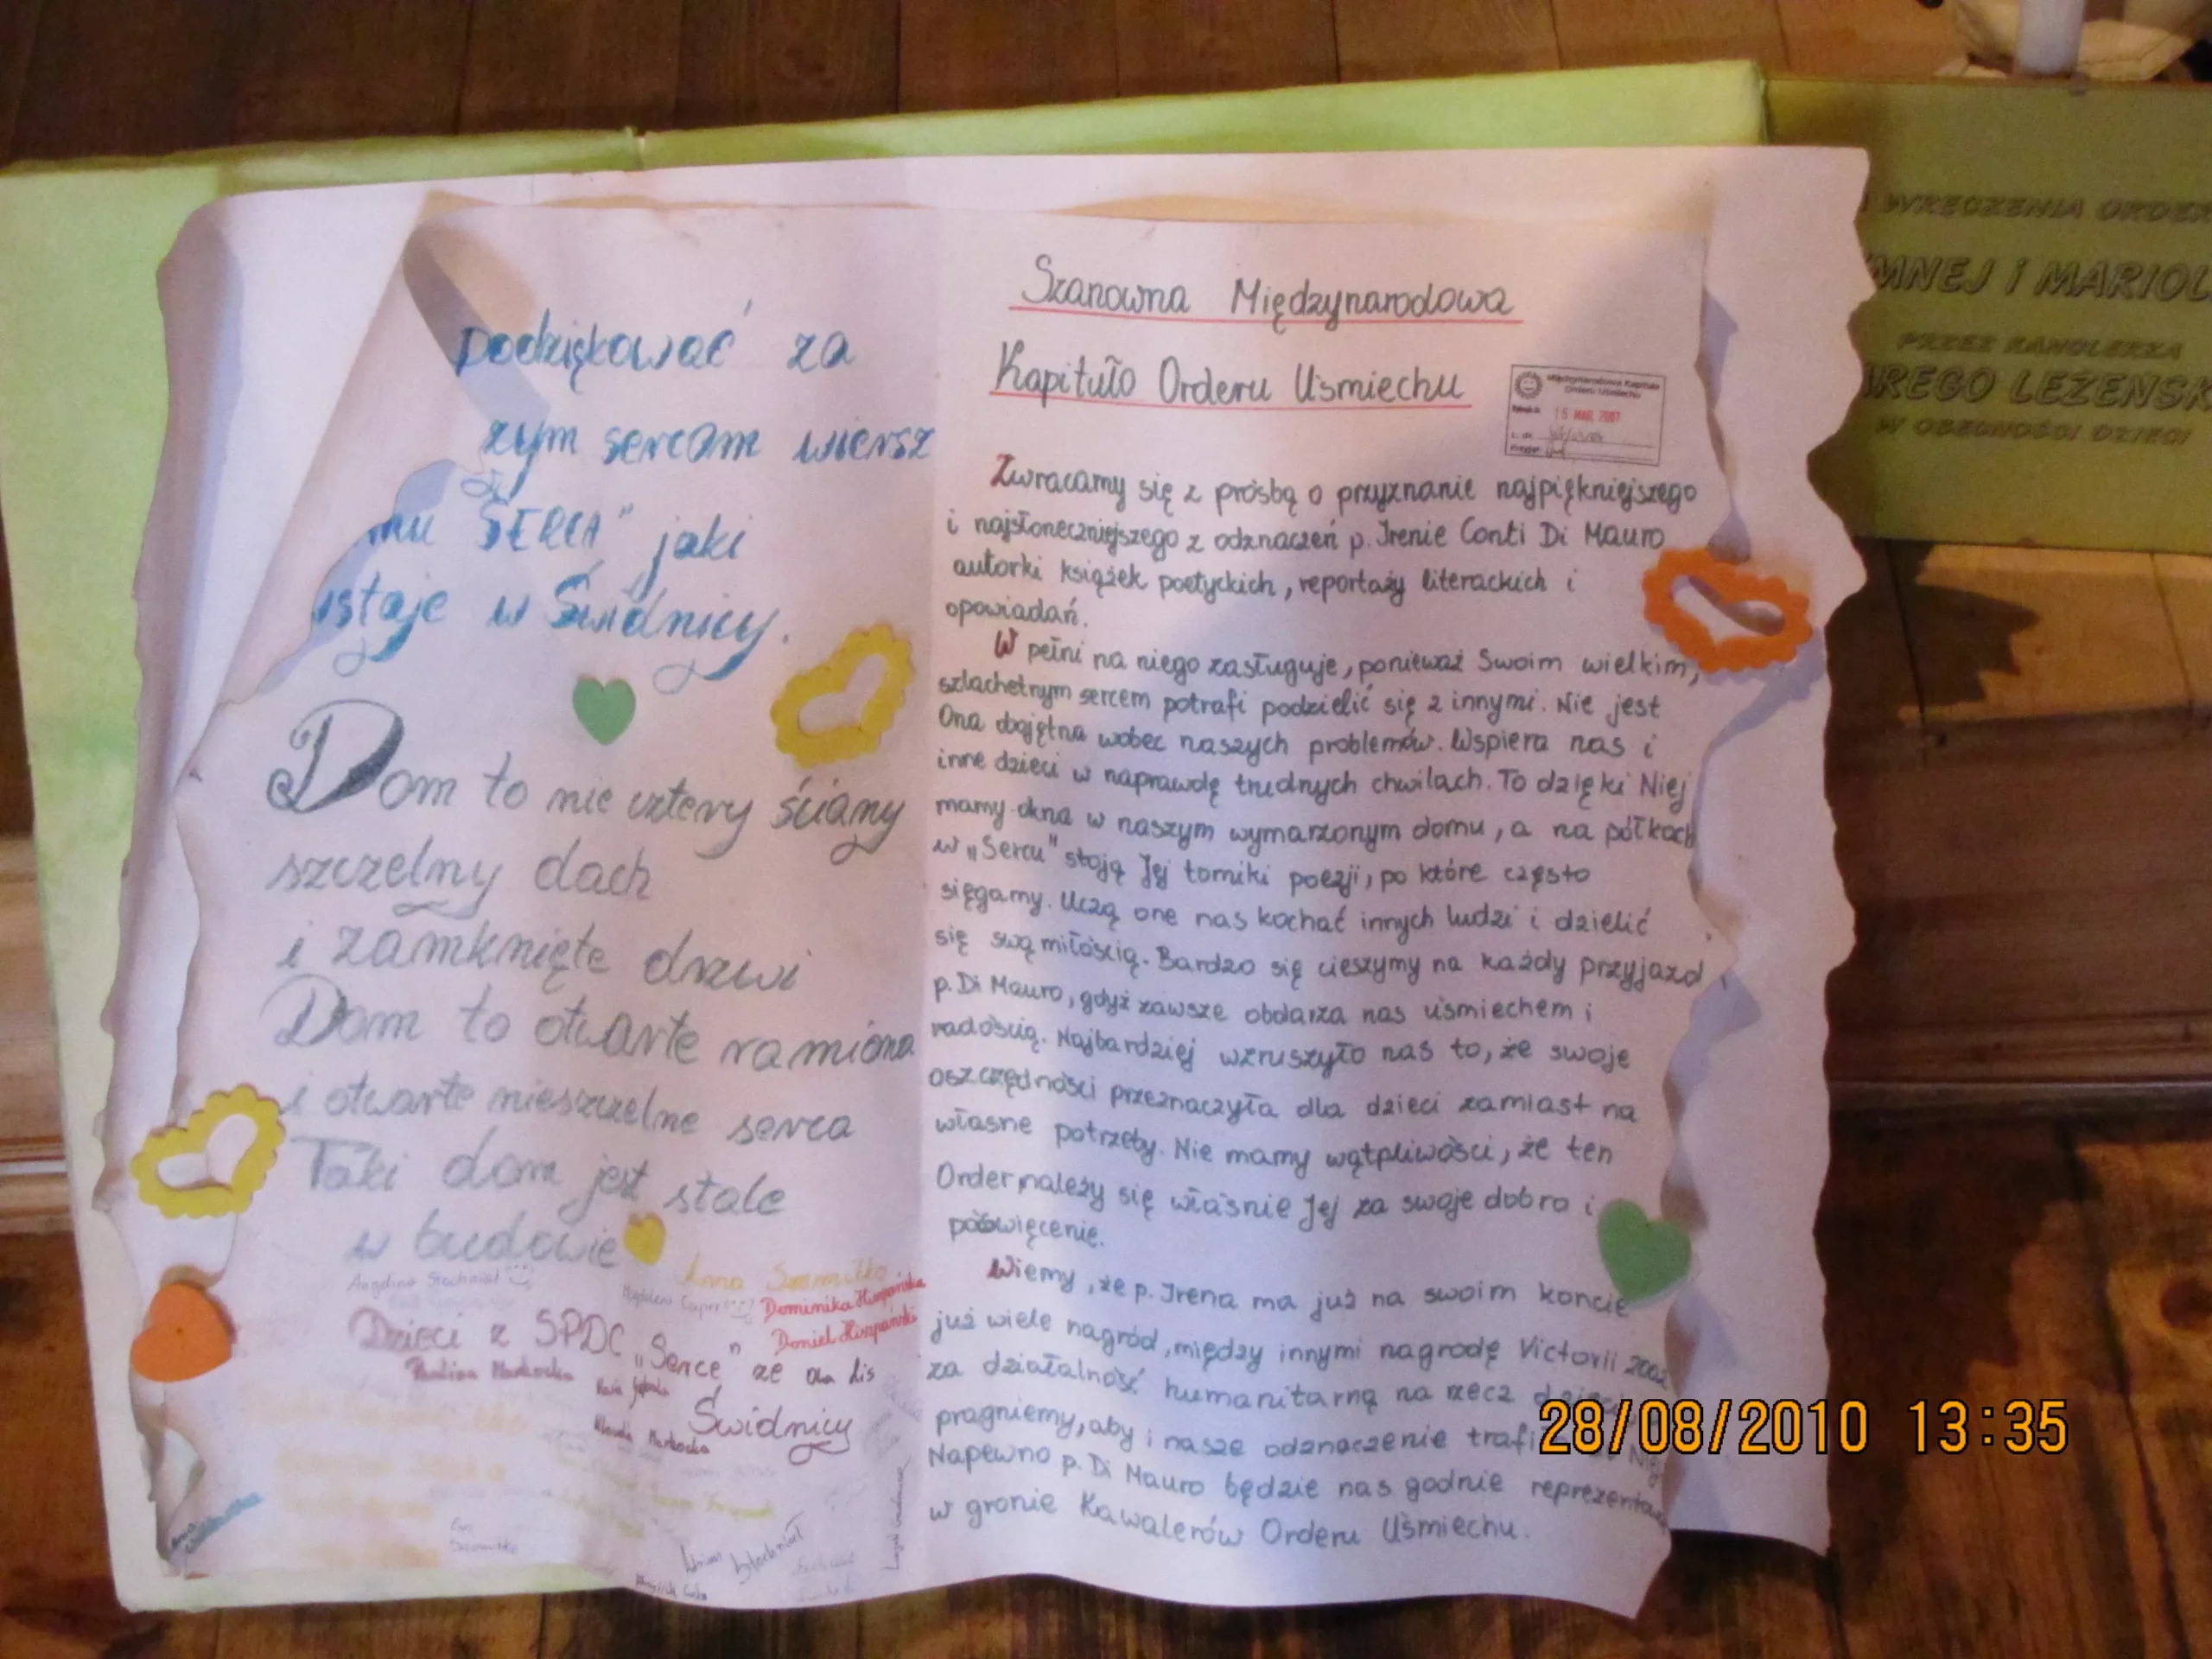 Podziękować za
zym sercom wiersz
mu SERCA" jaki
staje w Świdnicy.
Dom to nie cztery ściany
szczelny dach
i zamknięte drzwi
Dom to otwarte ramiona
i otwarte nieszczelne serca
Taki dom jest stale
w budowie
Angelina Stachniał
Anna
Dominika Hiszpańska
Daniel Hiszpański
Dzieci z SPDC „Serce" ze
Ola Lis
Paulina Markocka
Świdnicy
Markocka
Szanowna Międzynarodowa
Kapituło Orderu Uśmiechu
Międzynarodowa Kapituła
Orderu Uśmiechu
15 MAR. 2007
L. dz.
Zwracamy się z prośbą o przyznanie najpiękniejszego
i najsłoneczniejszego z odznaczeń p. Irenie Conti Di Mauro
autorki książek poetyckich, reportaży literackich i
opowiadań.
W pełni na niego zasługuje, ponieważ Swoim wielkim,
szlachetnym sercem potrafi podzielić się z innymi. Nie jest
Ona obojętna wobec naszych problemów. Wspiera nas i
inne dzieci w naprawdę trudnych chwilach. To dzięki Niej
mamy okna w naszym wymarzonym domu, a na półkach
w „Sercu" stoją Jej tomiki poezji, po które często
sięgamy. Uczą one nas kochać innych ludzi i dzielić
się swą miłością. Bardzo się cieszymy na każdy przyjazd
p. Di Mauro, gdyż zawsze obdarza nas uśmiechem i
radością. Najbardziej wzruszyło nas to, że swoje
oszczędności przeznaczyła dla dzieci zamiast na
własne potrzeby. Nie mamy wątpliwości, że ten
Order należy się właśnie Jej za swoje dobro i
poświęcenie.
Wiemy, że p. Irena ma już na swoim koncie
już wiele nagród, między innymi nagrodę Victorii 2002
za działalność humanitarną na rzecz
pragniemy, aby i nasze odznaczenie trafi
Napewno p. Di Mauro będzie nas godnie reprezentować
w gronie Kawalerów Orderu Uśmiechu.
WRĘCZENIA ORDER
MNEJ i MARIOL
PRZEZ KANCLERZA
AREGO LEŻEŃSK
W OBECNOŚCI DZIECI
28/08/2010 13:35